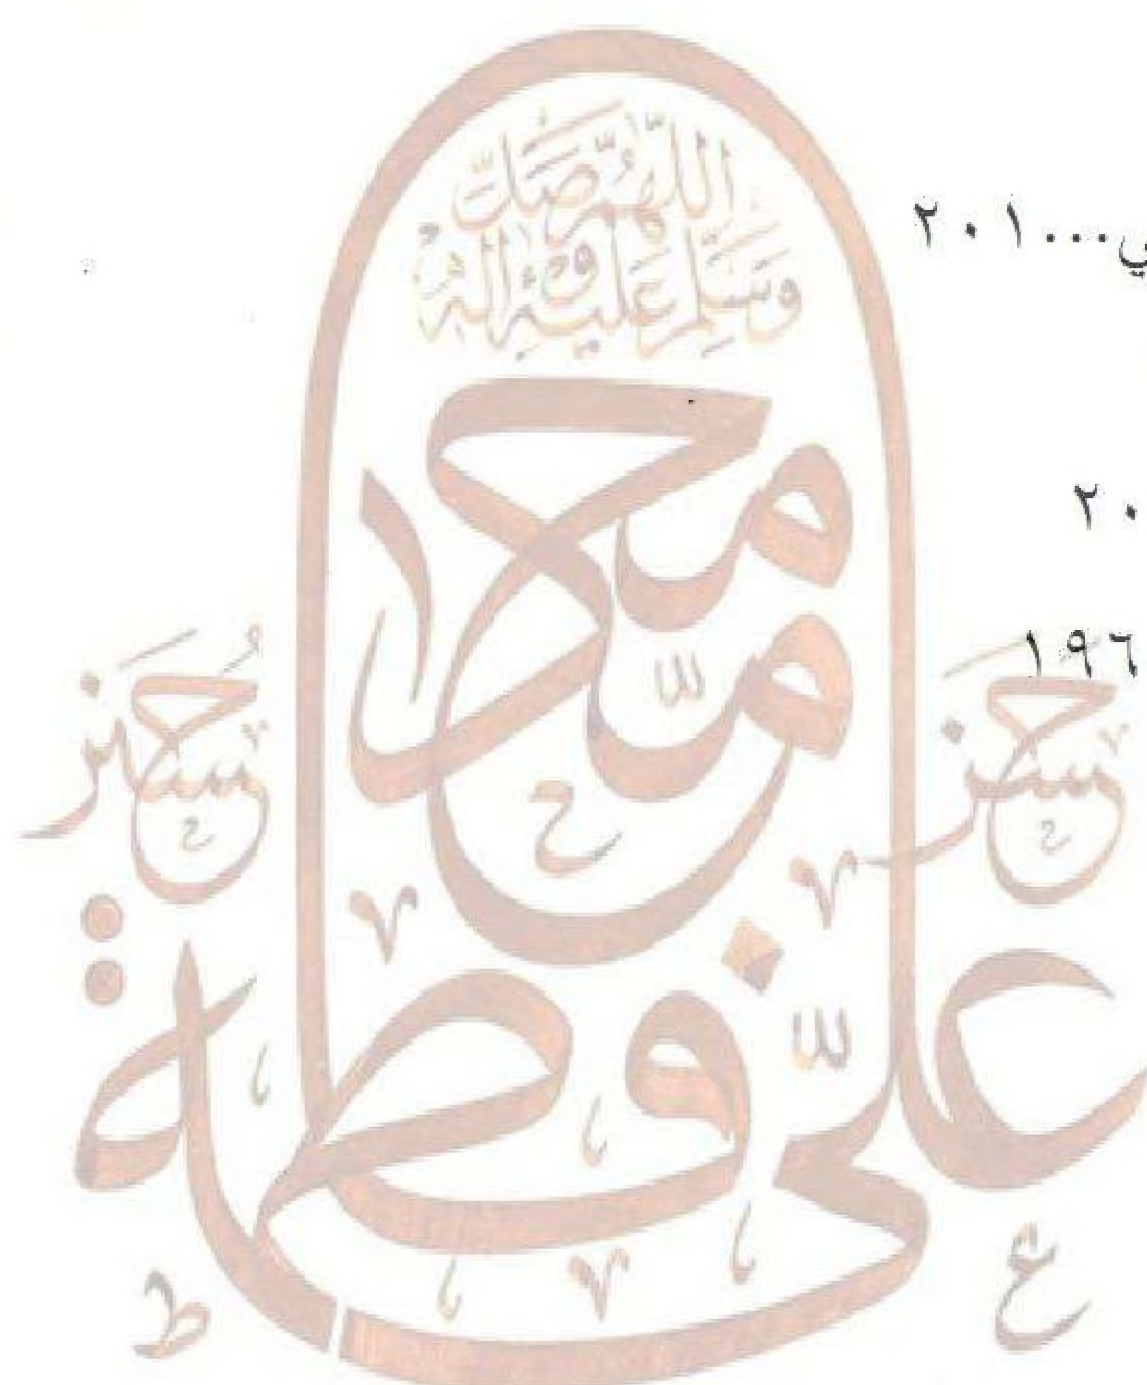 اللّهُمَّ صَلِّ
وَسَلِّمْ عَلَيْهِ وَآلِهِ
محمد
حسن
حسين
علي
فطمة
٢٠١...ي
٢٠
١٩٦